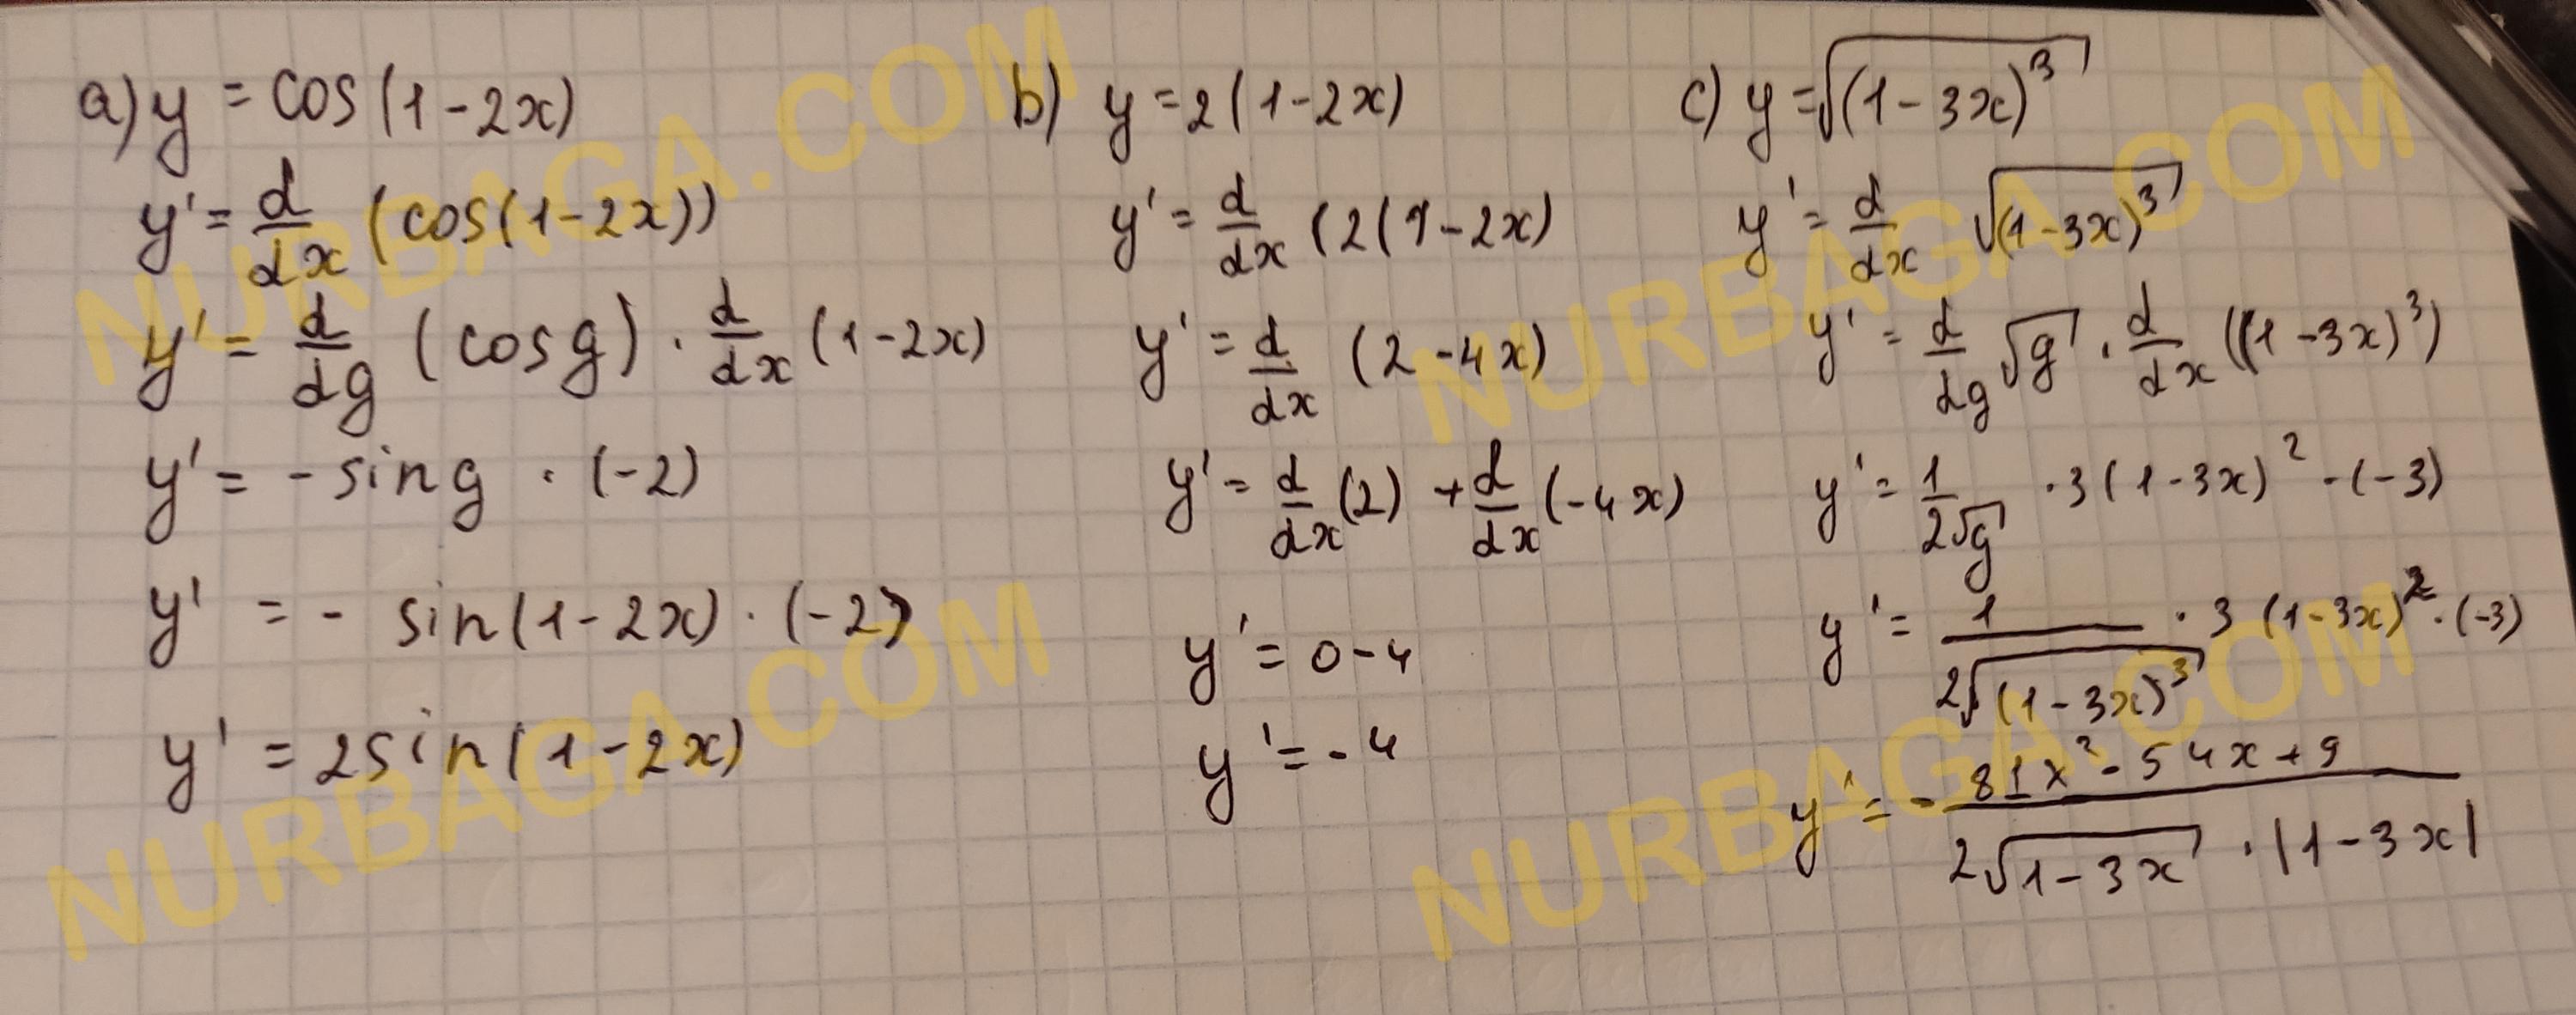 a) y = cos(1-2x)
y' = d/dx (cos(1-2x))
y' = d/dg (cos g) · d/dx (1-2x)
y' = -sin g · (-2)
y' = - sin(1-2x) · (-2)
y' = 2sin(1-2x)
b) y = 2(1-2x)
y' = d/dx (2(1-2x)
y' = d/dx (2-4x)
y' = d/dx (2) + d/dx (-4x)
y' = 0-4
y' = -4
c) y = √((1-3x)³)
y' = d/dx √((1-3x)³)
y' = d/dg √g · d/dx ((1-3x)³)
y' = 1/(2√g) · 3(1-3x)² · (-3)
y' = 1/(2√((1-3x)³)) · 3(1-3x)² · (-3)
y' = - (81x²-54x+9)/(2√(1-3x) · |1-3x|)
NURBAGA.COM
NURBAGA.COM
NURBAGA.COM
NURBAGA.COM